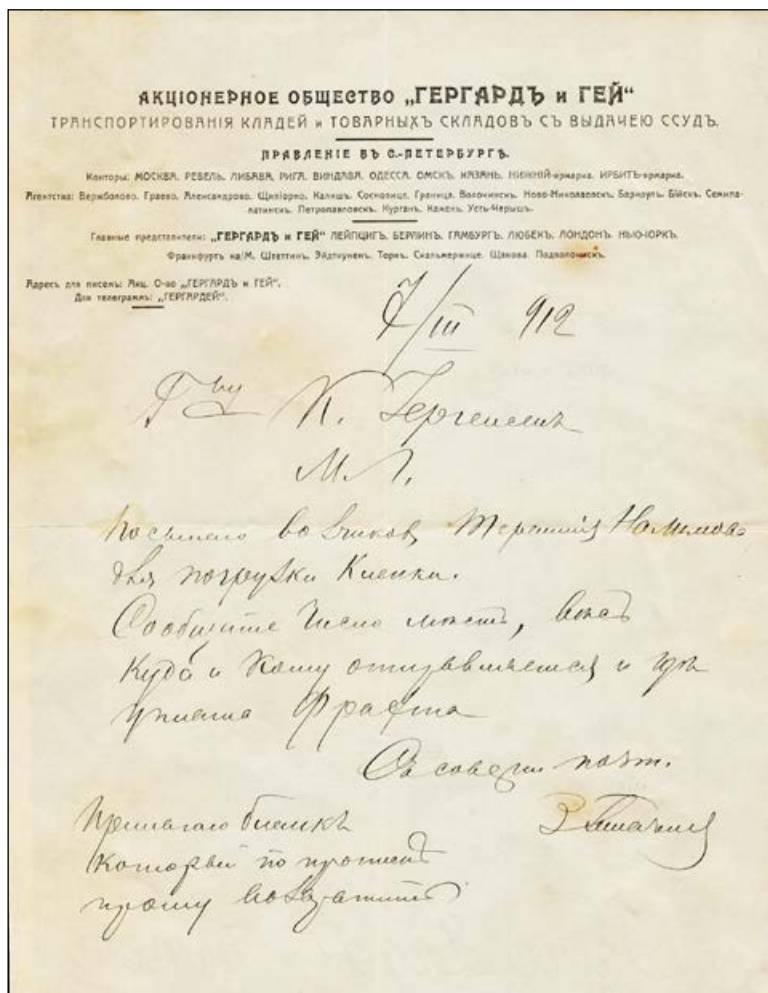 АКЦІОНЕРНОЕ ОБЩЕСТВО „ГЕРГАРДЪ и ГЕЙ“
ТРАНСПОРТИРОВАНІЯ КЛАДЕЙ и ТОВАРНЫХЪ СКЛАДОВЪ СЪ ВЫДАЧЕЮ ССУДЪ.
ПРАВЛЕНІЕ ВЪ С.-ПЕТЕРБУРГѢ.
Конторы: МОСКВА, РЕВЕЛЬ, ЛИБАВА, РИГА, ВИНДАВА, ОДЕССА, ОМСКЪ, КАЗАНЬ, НИЖНІЙ-ярмарка, ИРБИТЪ-ярмарка.
Агентства: Вержболово, Граево, Александрово, Щипіорно, Калишъ, Сосновице, Граница, Волочискъ, Ново-Николаевскъ, Барнаулъ, Бійскъ, Семипа-
латинскъ, Петропавловскъ, Курганъ, Камень, Усть-Чарышъ.
Главные представители: „ГЕРГАРДЪ и ГЕЙ“ ЛЕЙПЦИГЪ, БЕРЛИНЪ, ГАМБУРГЪ, ЛЮБЕКЪ, ЛОНДОНЪ, НЬЮ-ІОРКЪ,
Франкфуртъ на/М. Штеттинъ, Эйдткуненъ, Торнъ, Скальмержице, Щакова, Подволочискъ.
Адресъ для писемъ: Акц. О-во „ГЕРГАРДЪ и ГЕЙ“.
Для телеграммъ: „ГЕРГАРДЕЙ“.
7/III 912
Г-ну К.
М. Г.
Посылаю возчиковъ
для погрузки Клепки.
Сообщите число мѣстъ, вѣсъ
Куда и Кому отправляется и гдѣ
уплата Фрахта
Съ соверш почт.
Прилагаю бланкъ
который по прочтен
прошу возвратить